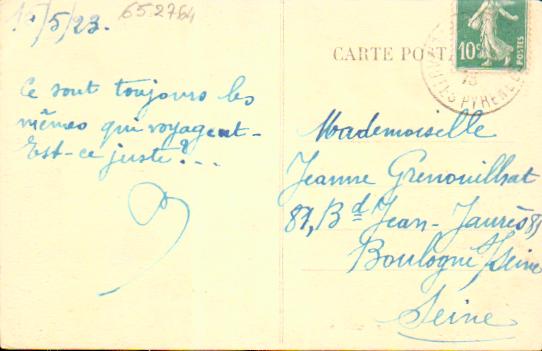 /5/23.
652764
CARTE POSTA
10c
POSTES
PYRENE
Ce sont toujours les
mêmes qui voyagent-
Est-ce juste? ...
Mademoiselle
Jeanne Grenouilhat
81, Bd Jean-Jaurès 81
Boulogne s/Seine
Seine